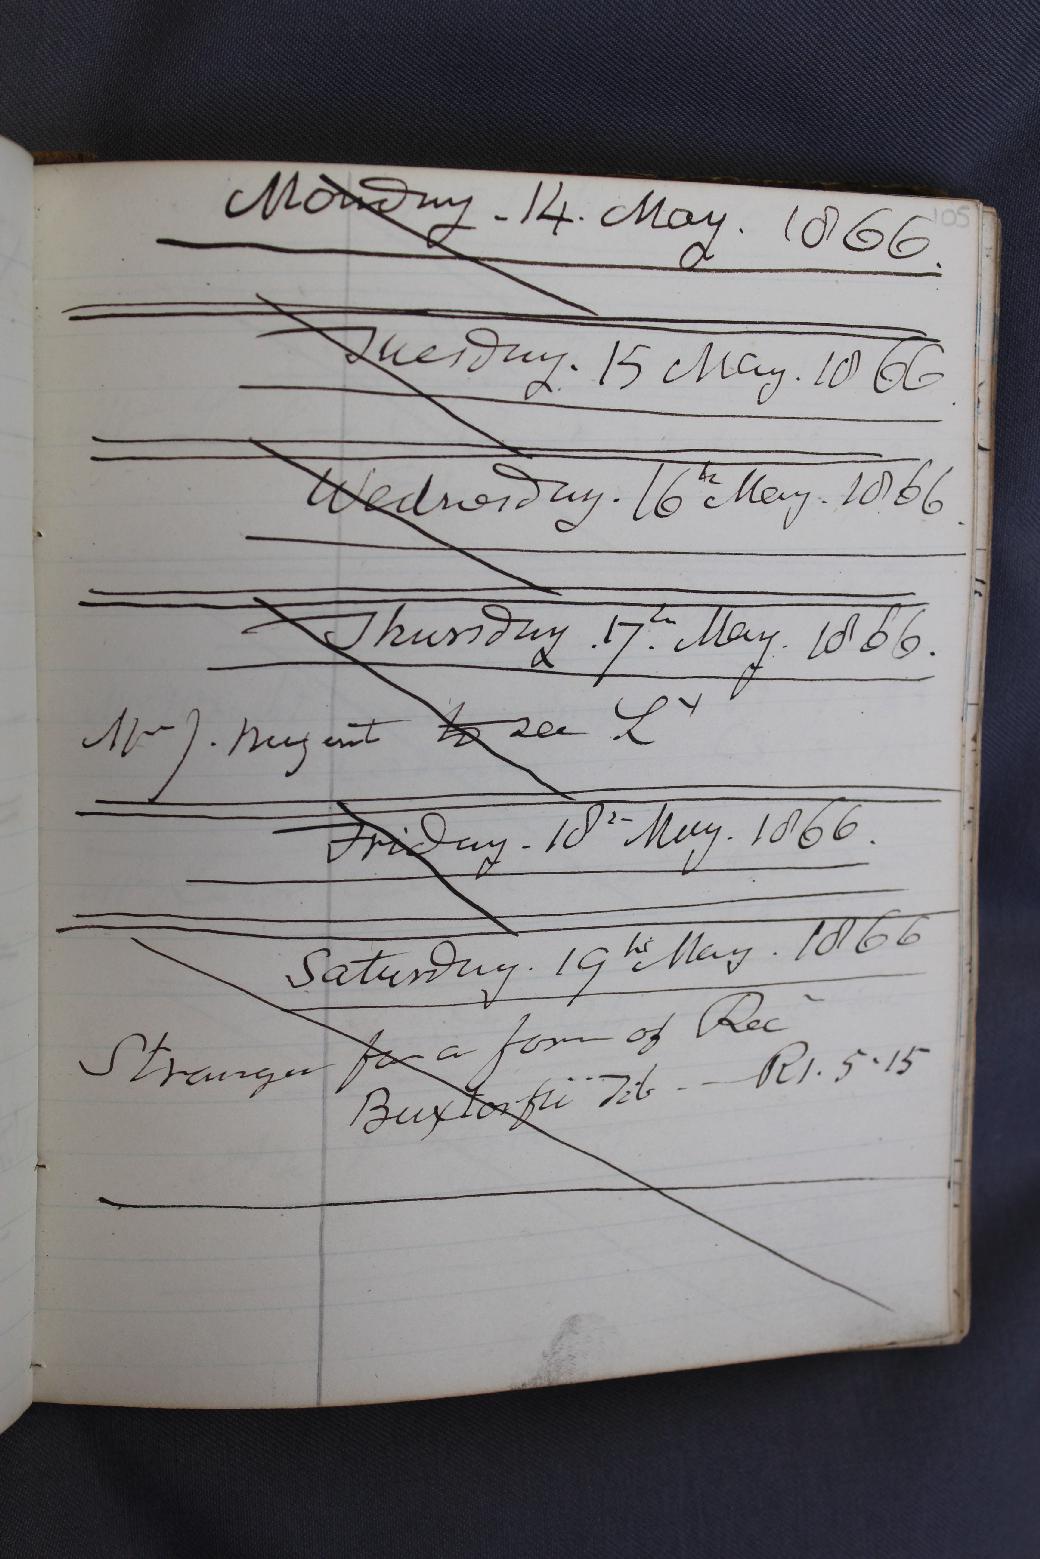 105
Monday - 14. May. 1866.
Tuesday. 15 May. 1866.
Wednesday. 16th May. 1866.
Thursday. 17th. May. 1866.
Mr J. Nugent to see Ly
Friday - 18th May. 1866.
Saturday. 19th May. 1866
Stranger for a form of Rec
Buxtorfii Tib -- R1. 5.15